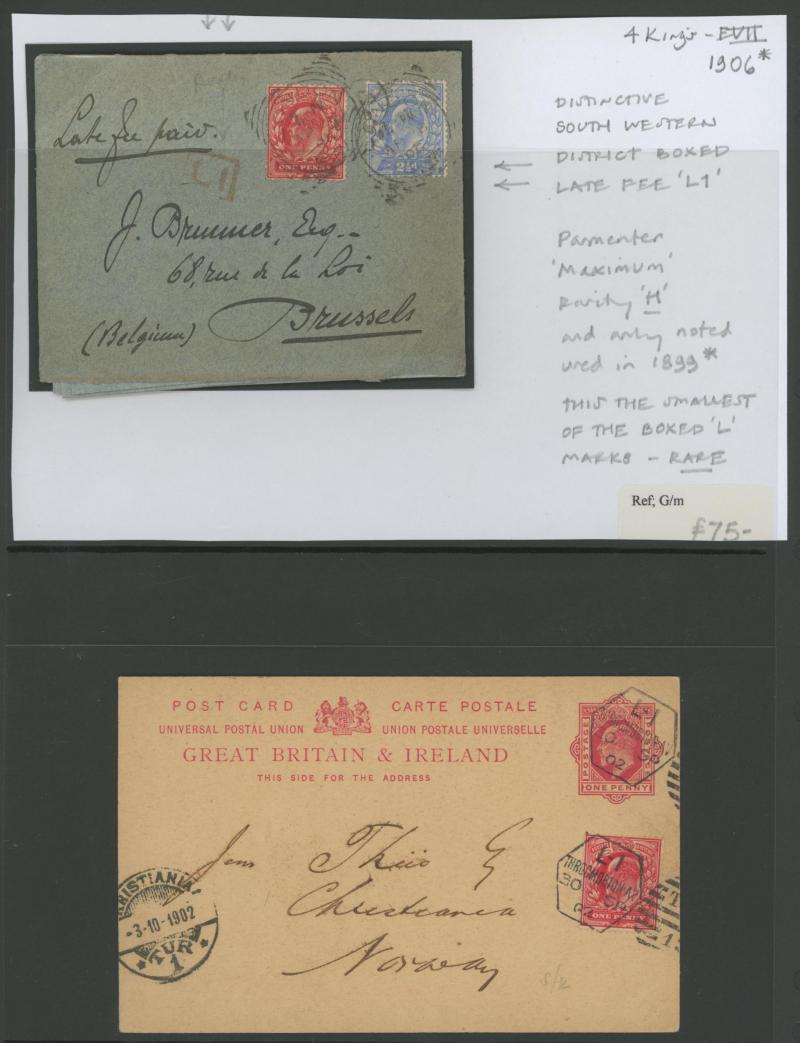 4 King's - EVII
1906*
DISTINCTIVE
SOUTH WESTERN
DISTRICT BOXED
LATE FEE 'L1'
Parmenter
'Maximum'
rarity 'H'
and only noted
used in 1899*
THIS THE SMALLEST
OF THE BOXED 'L'
MARKS - RARE
Ref; G/m
£75-
Late fee paid.
L1
ONE PENNY
2½d
J. Brunner, Esq.
68, rue de la Loi
(Belgium) Brussels
POST CARD CARTE POSTALE
UNIVERSAL POSTAL UNION UNION POSTALE UNIVERSELLE
GREAT BRITAIN & IRELAND
THIS SIDE FOR THE ADDRESS
POSTAGE
ONE PENNY
L1
02
L1
THROGMORTON AV
30 SP
02
ONE PENNY
Jens Thiis
Christiania
Norway
KRISTIANIA
-3-10-1902
TUR
1